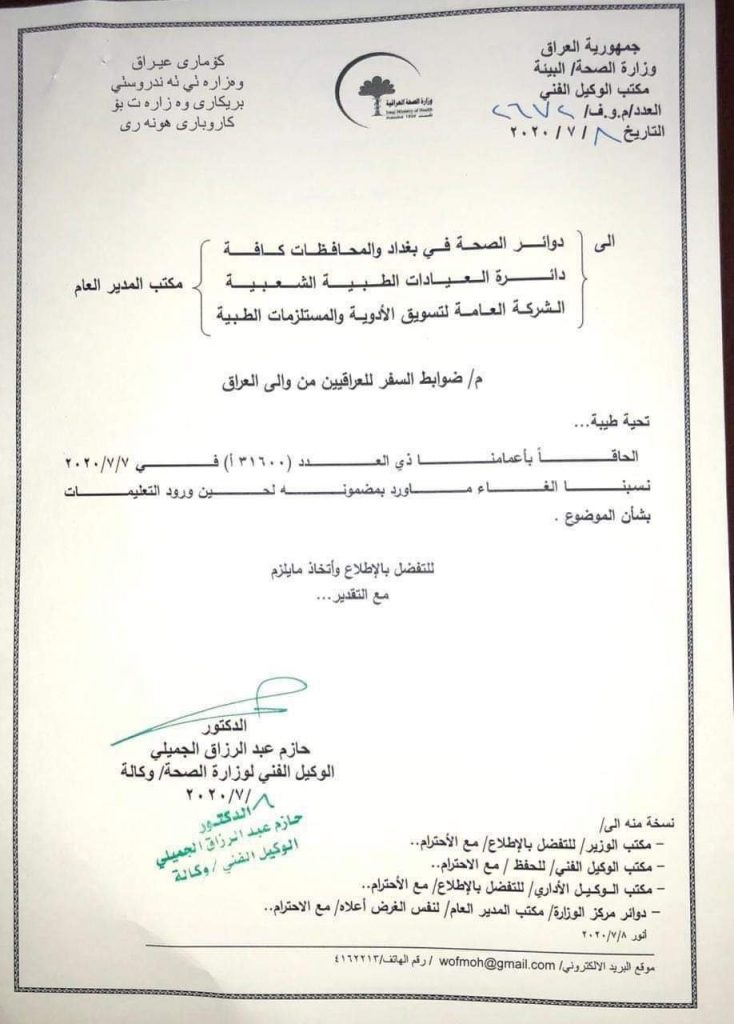 جمهورية العراق
وزارة الصحة/ البيئة
مكتب الوكيل الفني
العدد/م.و.ف/ ٢٦٧٢
التاريخ ٨ / ٧ / ٢٠٢٠
كۆماری عیراق
وەزارە تی تە ندروستی
بریکاری وە زارە ت بۆ
کاروباری هونە ری
وزارة الصحة العراقية
Iraqi Ministry of Health
الى
دوائر الصحة في بغداد والمحافظات كافة
دائرة العيادات الطبية الشعبية
الشركة العامة لتسويق الأدوية والمستلزمات الطبية
مكتب المدير العام
م/ ضوابط السفر للعراقيين من والى العراق
تحية طيبة...
الحاقاً بأعمامنا ذي العدد (٣١٦٠٠ أ) في ٢٠٢٠/٧/٧
نسبنا الغاء ماورد بمضمونه لحين ورود التعليمات
بشأن الموضوع .
للتفضل بالإطلاع وأتخاذ مايلزم
مع التقدير...
الدكتور
حازم عبد الرزاق الجميلي
الوكيل الفني لوزارة الصحة/ وكالة
٨ /٢٠٢٠/٧
الدكتور
حازم عبد الرزاق الجميلي
الوكيل الفني / وكالة
نسخة منه الى/
– مكتب الوزير/ للتفضل بالإطلاع/ مع الأحترام..
– مكتب الوكيل الفني/ للحفظ / مع الاحترام..
– مكتب الوكيل الأداري/ للتفضل بالإطلاع/ مع الأحترام..
– دوائر مركز الوزارة/ مكتب المدير العام/ لنفس الغرض أعلاه/ مع الاحترام..
أنور ٢٠٢٠/٧/٨
موقع البريد الالكتروني/ wofmoh@gmail.com / رقم الهاتف/٤١٦٢٢١٣